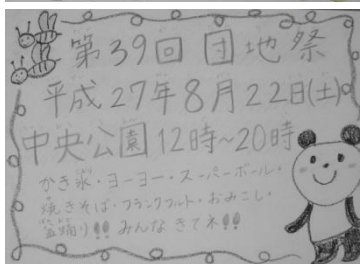 第39回 団地祭
平成27年8月22日(土)
中央公園12時~20時
かき氷・ヨーヨー・スーパーボール・
焼きそば・フランクフルト・おみこし・
盆踊り!! みんな きてネ!!